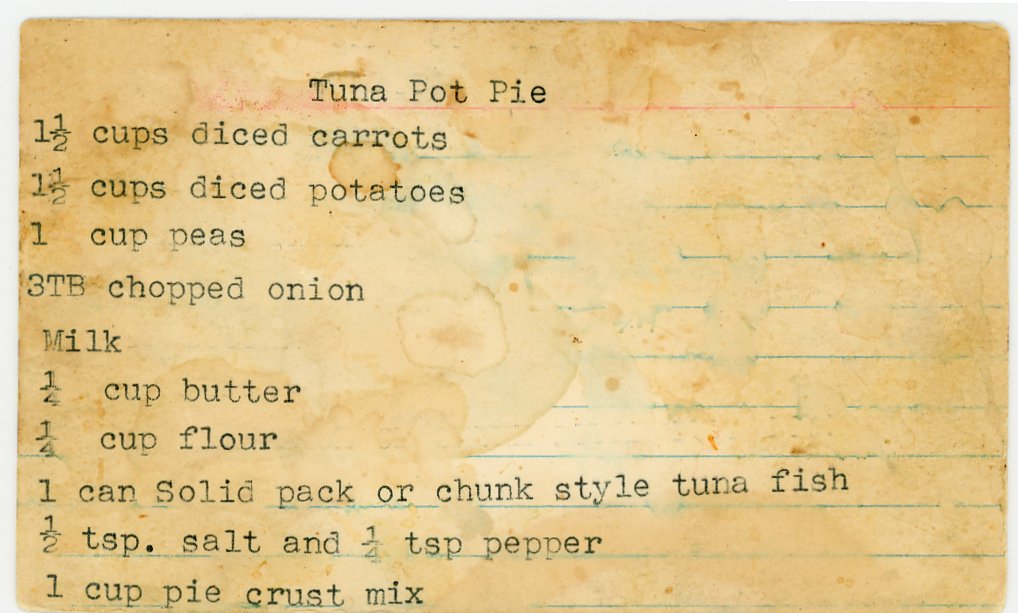 Tuna Pot Pie
1½ cups diced carrots
1½ cups diced potatoes
1 cup peas
3TB chopped onion
Milk
¼ cup butter
¼ cup flour
1 can Solid pack or chunk style tuna fish
½ tsp. salt and ¼ tsp pepper
1 cup pie crust mix